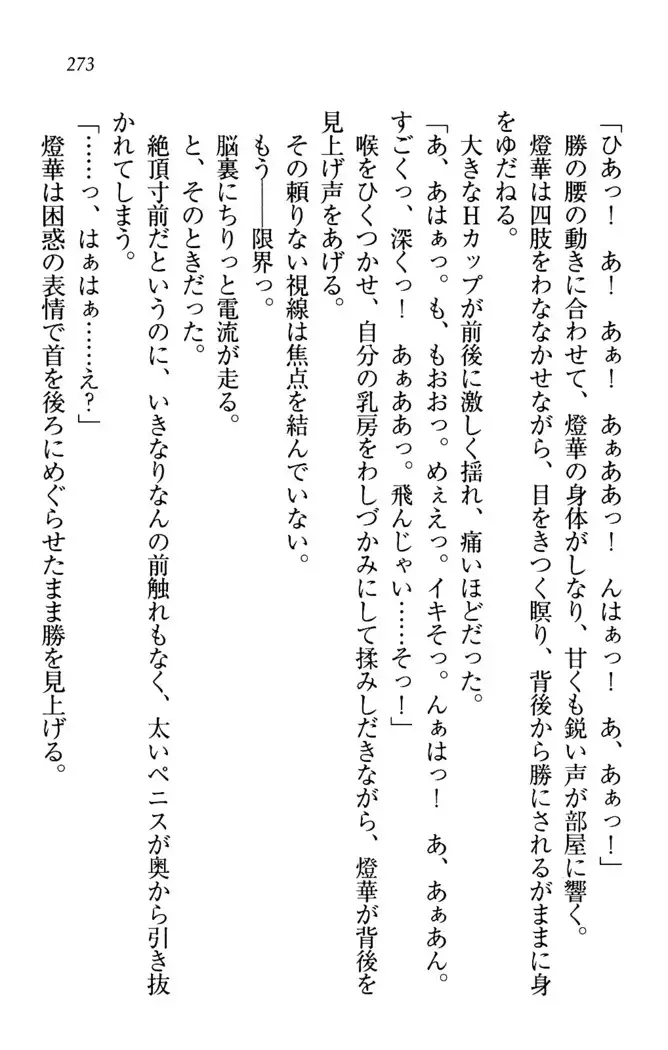 273
「ひあっ！　あ！　あぁ！　あぁああっ！　んはぁっ！　あ、あぁっ！」
勝の腰の動きに合わせて、燈華の身体がしなり、甘くも鋭い声が部屋に響く。
燈華は四肢をわななかせながら、目をきつく瞑り、背後から勝にされるがままに身
をゆだねる。
大きなＨカップが前後に激しく揺れ、痛いほどだった。
「あ、あはぁっ。も、もおおっ。めぇえっ。イキそっ。んぁはっ！　あ、あぁあん。
すごくっ、深くっ！　あぁああっ。飛んじゃい……そっ！」
喉をひくつかせ、自分の乳房をわしづかみにして揉みしだきながら、燈華が背後を
見上げ声をあげる。
その頼りない視線は焦点を結んでいない。
もう――限界っ。
脳裏にちりっと電流が走る。
と、そのときだった。
絶頂寸前だというのに、いきなりなんの前触れもなく、太いペニスが奥から引き抜
かれてしまう。
「……っ、はぁはぁ……え？」
燈華は困惑の表情で首を後ろにめぐらせたまま勝を見上げる。